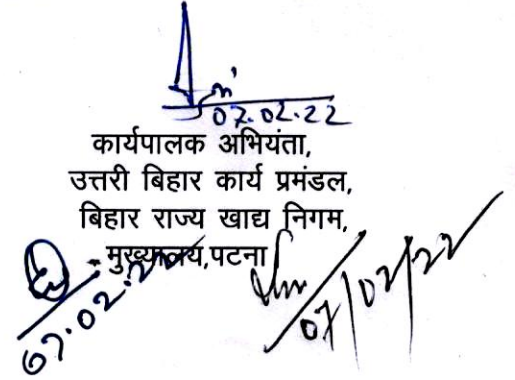 07.02.22
कार्यपालक अभियंता,
उत्तरी बिहार कार्य प्रमंडल,
बिहार राज्य खाद्य निगम,
मुख्यालय,पटना
07.02.22
07/02/22